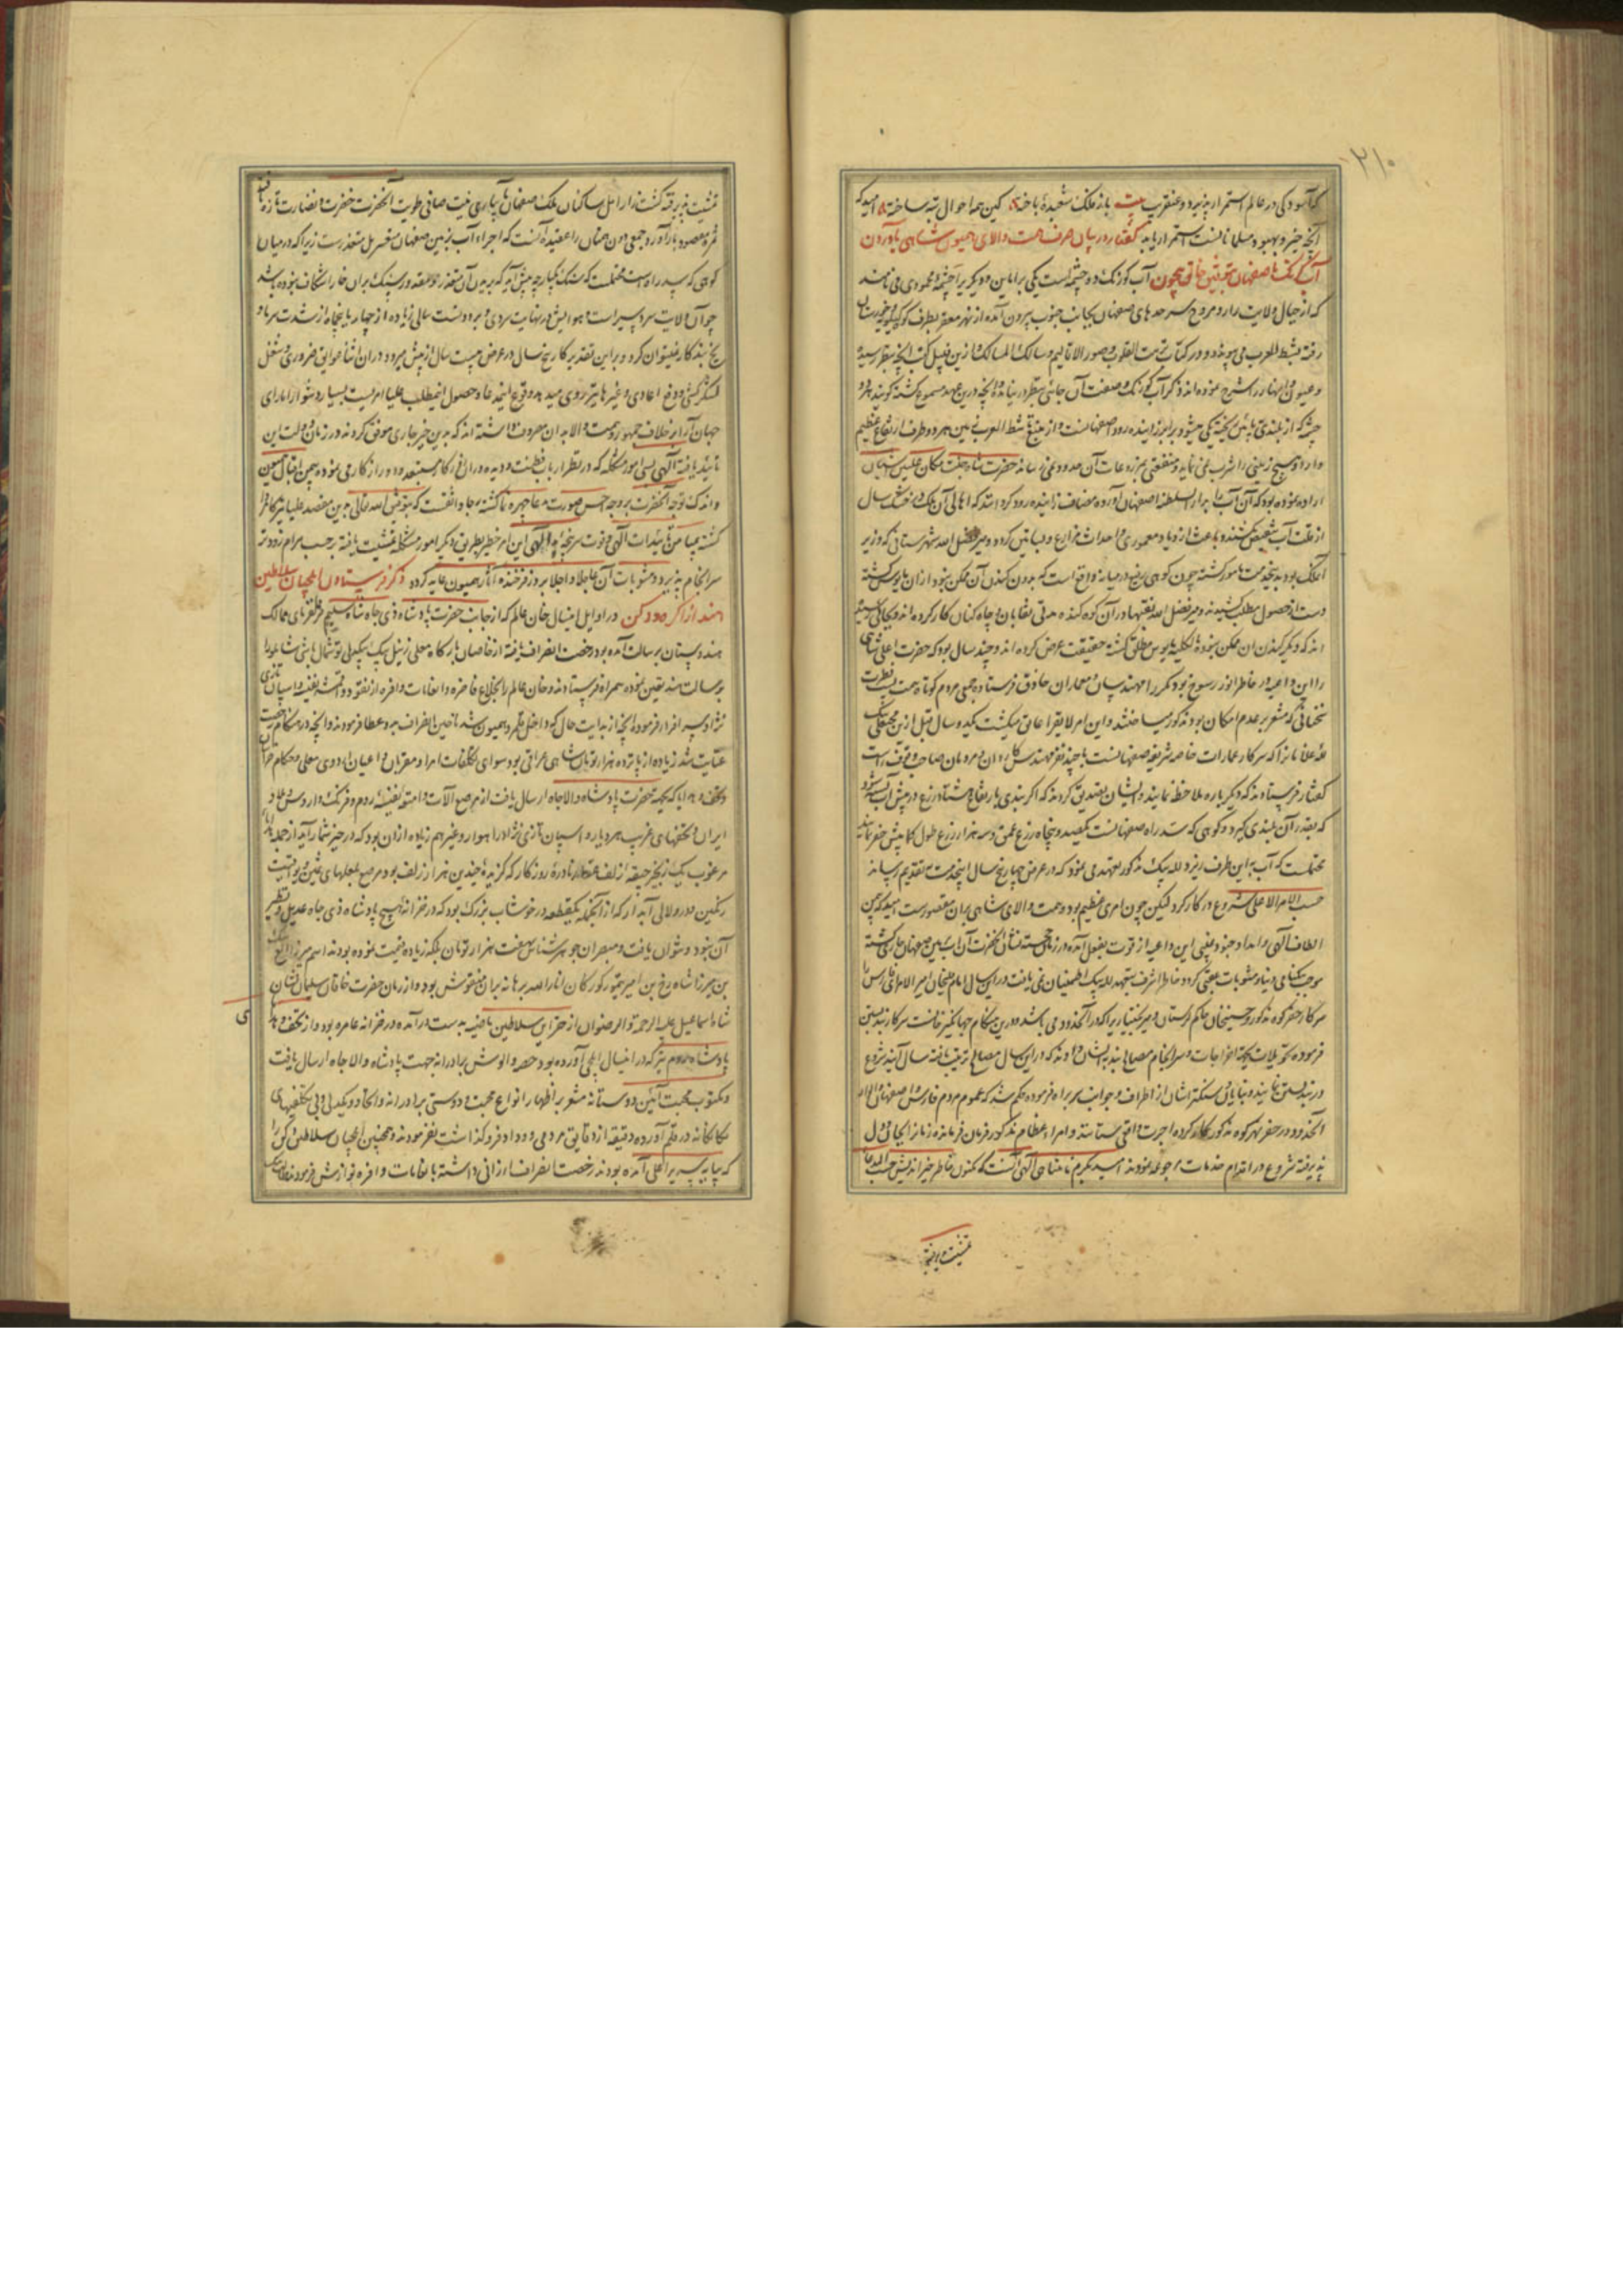 ۲۱۰
که آسودگی در عالم استمرار پذیرد و عنقریب بیت باز فلک شعبده باخته کین همه احوال تبه ساخته امید که
آنچه خیر و بهبود مسلمانانست استمرار یابد گفتار در بیان صرف همت والای همیون شاهی بآوردن
آب کرنک باصفهان بتوفیق خالق بیچون آب کورنک دو چشمه است یکی را ماربین و دیگری را چشمه محمودی می نامند
که از جبال ولایت زارد و مروج سرحدهای صفهان بجانب جنوب بیرون آمده از نهر معقر بطرف کوه کیلویه و خوزستان
رفته بشط العرب می پیوندد و در کتاب نزهت القلوب و صور الاقالیم و مسالک الممالک ازین قبیل کتب آنچه بنظر رسیده
و عیون و انهار را شرح نموده اند ذکر آب کورنک و صفت آن جائی بنظر در نیامده و آنچه درین عهد مسموع گشته گویند هر دو
چشمه که از بلندی پائین ریخته یکی میشود برابر زاینده رود اصفهانست و از منبع تا شط العرب زمین هر دو طرف ارتفاع عظیم
دارد و هیچ زمینی را شرب نمی نماید و منفعتی بمزروعات آن حدود نمیرساند حضرت شاه جنت مکان علیین آشیان
اراده نموده بود که آن آب را بدار السلطنه اصفهان آورده مضاف زاینده رود گرداند که اهالی آن ملک در خشک سال
از قلت آب بتنقیص نکشند و باعث ازدیاد معموری و احداث مزارع و بساتین گردد و میر فضل الله شهرستانی که وزیر
آن ملک بود بدین خدمت مامور گشته چون کوهی رفیع در میانه واقع است که بدون کندن آن ممکن نبود ازان مایوس گشته
دست از حصول مطلب کشیدند و میر فضل الله نقبها در آن کوه کنده مدتی نقابان و چاه کنان کار کرده اند و بجائی رسیده
اند که دیگر کندن آن ممکن نبوده بالکلیه مایوس مطلق گشته حقیقت عرض کرده اند و چند سال بود که حضرت اعلی شاهی
را این داعیه در خاطر انور رسوخ بود مکررا مهندسان و معماران حاذق فرستاده جمعی مردم کوتاه همت پست فطرت
سخنانی که مشعر بر عدم امکان بود مذکور میساختند و این امر لایق را عایق میگشت یکدو سال قبل ازین محبعلی بیک
لله غلامان را که سرکار عمارات خاصه شریفه صفهانست با چند نفر مهندس کاردان و مردمان صاحب وقوف راست
گفتار فرستادند که دیگر باره ملاحظه نمایند و ایشان تصدیق کردند که اگر بندی بارتفاع هشتاد ذرع در پیش آب بسته شود
که بقدر آن بلندی گیرد و کوهی که سد راه صفهانست یکصد و پنجاه ذرع عمق و سه هزار ذرع طول کما بیش حفر نمایند
محتملست که آب باین طرف ریزد لله بیک مذکور تعهد می نمود که در عرض چهار پنج سال این خدمت بتقدیم رساند
حسب الامر الاعلی شروع در کار کرد لیکن چون امری عظیم بود و همت والای شاهی بران مقصورست امید که بیمن
الطاف الهی و امداد جنود غیبی این داعیه از قوت بفعل آمده در زمان خجسته نشان آنحضرت آن آب بزمین صفهان جاری گشته
موجب نیکنامی دنیا و مثوبات عقبی گردد خاطر اشرف بتعهد لله بیک اطمینان نمی یافت درین سال امامقلیخان امیر الامرای فارس را
سرکار حفر کوه مذکور و حسینخان حاکم لرستان و میر بختیاری را که در آن حدود می باشد درین هنگام جهانگیر خانست سرکار بند بستن
فرموده تحویلات بجهة اخراجات و سرانجام مصالح بند بدیشان دادند که درین سال مصالح ترتیب یافته سال آینده شروع
در بند بستن نمایند و بنایان و سنگتراشان از اطراف و جوانب سربراه فرموده حکم شد که عموم مردم فارس و اصفهان و الوار
آنحدود در حفر نهر کوه مذکور کار کرده اجرت واقعی ستانند و امراء عظام مذکور فرمان فرمانده زمان را بجان و دل
پذیرفته شروع در اقدام خدمات مرجوعه نمودند امید بکرم نامتناهی الهی آنست که مکنون خاطر خیر اندیش حسب المدعا
تمشیت پذیرفته
تمشیت پذیرفته کشت زار امل ساکنان ملک صفهان بآبیاری نیت صافی طویت آنحضرت خضرت و نضارت تازه یافته
ثمره مقصود بار آورد و جمعی دون همتان را عقیده آنست که اجراء آب بزمین صفهان متعسر بل متعذرست زیرا که در میان
کوهی که سد راه است محتملست که سنگ یکپارچه پیش آید که بریدن آن متعذر بوده نقبه در سنگ بران خارا شکاف نبوده باشد
چو آن ولایت سردسیر است و هوایش در نهایت سردی و برودت سالی زیاده از چهار ماه یا پنجماه از شدت سرما و
یخ بند کار نمیتوان کرد و بر این تقدیر کار پنج سال در عرض بیست سال از پیش میرود و دران اثنا عوایق ضروری و شغل
لشکر کشی و دفع اعادی و غیرها نیز روی میدهد وقوع این مدعا و حصول این مطلب علیا امریست بسیار دشوار اما رای
جهان آرا بر خلاف جمهور و همت والا بدان مصروف داشته اند که بدین خیر جاری موفق گردند و در زمان دولت این
تایید یافته الهی بسی امور مشکله که در نظر ارباب فطنت و دیده ورانی افکار مستبعد و دور از کار می نموده بیمن اقبال همیون
و اندک توجه آنحضرت بر وجه احسن صورت مدعا چهره نما گشته رجا واثقست که بتوفیق الله تعالی بدین مقصد علیا نیز کامروا
گشته بمیامن تائیدات الهی و قوت سر پنجه ید اللهی این امر خطیر بطریق دیگر امور مشکله تمشیت یافته بر حسب مرام زودتر
سرانجام پذیرد و مثوبات آن عاجلا و آجلا بروز فرخنده آثار همیون عاید گردد ذکر فرستادن ایلچیان سلاطین
هند از اکره و دکن در اوایل این سال خان عالم که از جانب حضرت پادشاه ذی جاه شاه سلیم فرمانفرمای ممالک
هندوستان برسالت آمده بود رخصت انصراف یافته از خاصان بارگاه معلی زینل بیک بیگدلی توشمال باشی شاملو را
برسالت هند تعیین نموده همراه فرستادند و خان عالم را بخلاع فاخره و انعامات وافره از نقود و اقمشه نفیسه و اسپان تازی
نژاد سرافراز فرموده آنچه از بدایت حال که داخل قلمرو همیون شد تا حین انصراف بدو عطا فرمودند و آنچه در هنگام رخصت
عنایت شد زیاده از پانزده هزار تومان شاهی عراقی بود سوای تکلفات امرا و مقربان و اعیان اردوی معلی و حکام خراسان
و تحف و هدایا که بجهة حضرت پادشاه والاجاه ارسال یافت از مرصع آلات و امتعه نفیسه روم و فرنگ و اروس و بلاد
ایران و تحفهای غریب هر دیار و اسپان تازی نژاد راهوار و غیر هم زیاده ازان بود که در حیز شمار آید از جمله هدایا
مرغوب یک زنجیر جیقه زلف عنقا نادره روزگار که گزیده چندین هزار زلف بود مرصع بلعلهای ثمین و یواقیت
رنگین و در و لالی آبدار که از آنجمله یکقطعه در خوشاب بزرگ بود که در خزانه هیچ پادشاه ذی جاه عدیل و نظیر
آن نبود و نتوان یافت و مبصران جوهر شناس هفت هزار تومان بلکه زیاده قیمت نموده بودند اسم میرزا الغ بیک
بن میرزا شاهرخ بن امیر تیمور کورکان انار الله برهانه بران منقوش بود و از زمان حضرت خاقان سلیمان نشان
شاه اسماعیل علیه الرحمة و الرضوان از خزاین سلاطین ماضیه بدست در آمده در خزانه عامره بود و از تحف و هدایای
پادشاه روم نیز که در این سال ایلچی آورده بود حصه و الوش برادرانه جهت پادشاه والا جاه ارسال یافت
و مکتوب محبت آئین دوستانه مشعر بر اظهار انواع محبت و دوستی برادرانه و اتحاد و یکدلی و بی تکلفیهای
یگانگانه در قلم آورده دقیقه از دقایق مردمی و وداد فروگذاشت نفرمودند و همچنین ایلچیان سلاطین دکن را
که بپایه سریر اعلی آمده بودند رخصت انصراف ارزانی داشته بانعامات وافره نوازش فرمودند